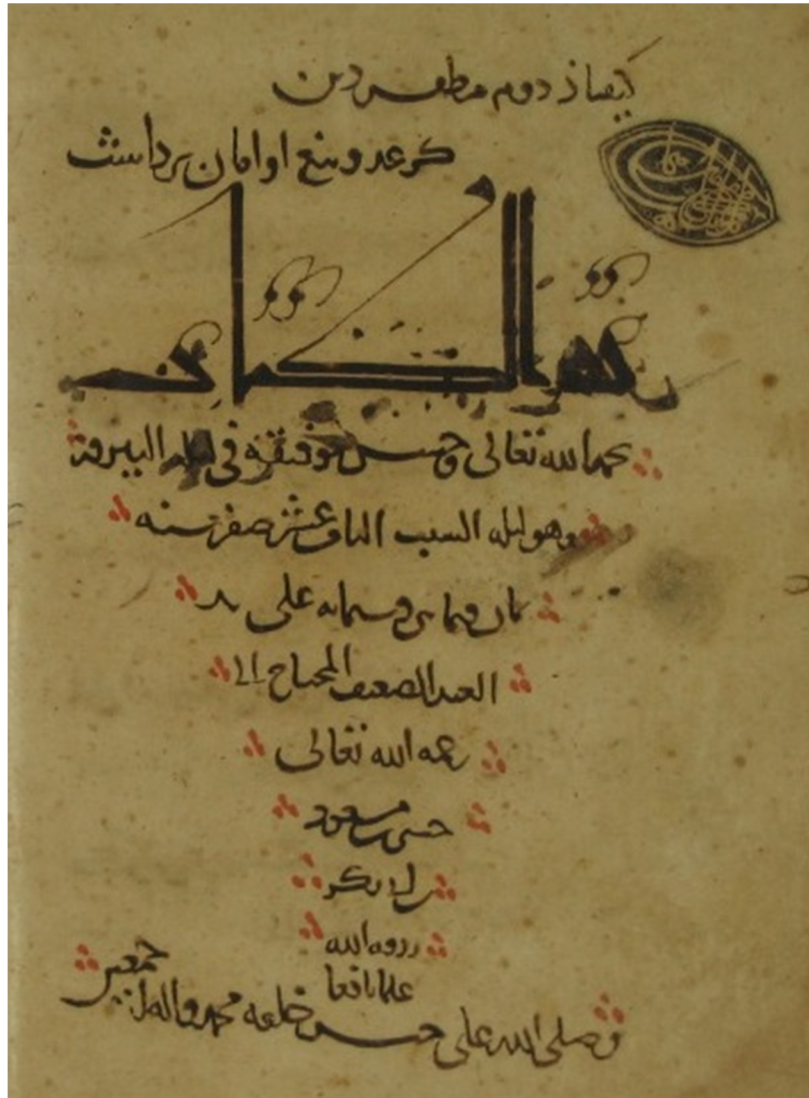 کیقباذ دوم مظفر دین
کز عدو تیغ او امان برداشت
بحمد الله تعالى وحسن توفيقه فى
وهو ليله السبت عشر صفر سنه
ثمان وثمانين وستمائه على يد
العبد الضعيف المحتاج الى
رحمه الله تعالى
مسعود
بن ابى بكر
رزقه الله
علما نافعا
وصلى الله على خير خلقه محمد واله اجمعين